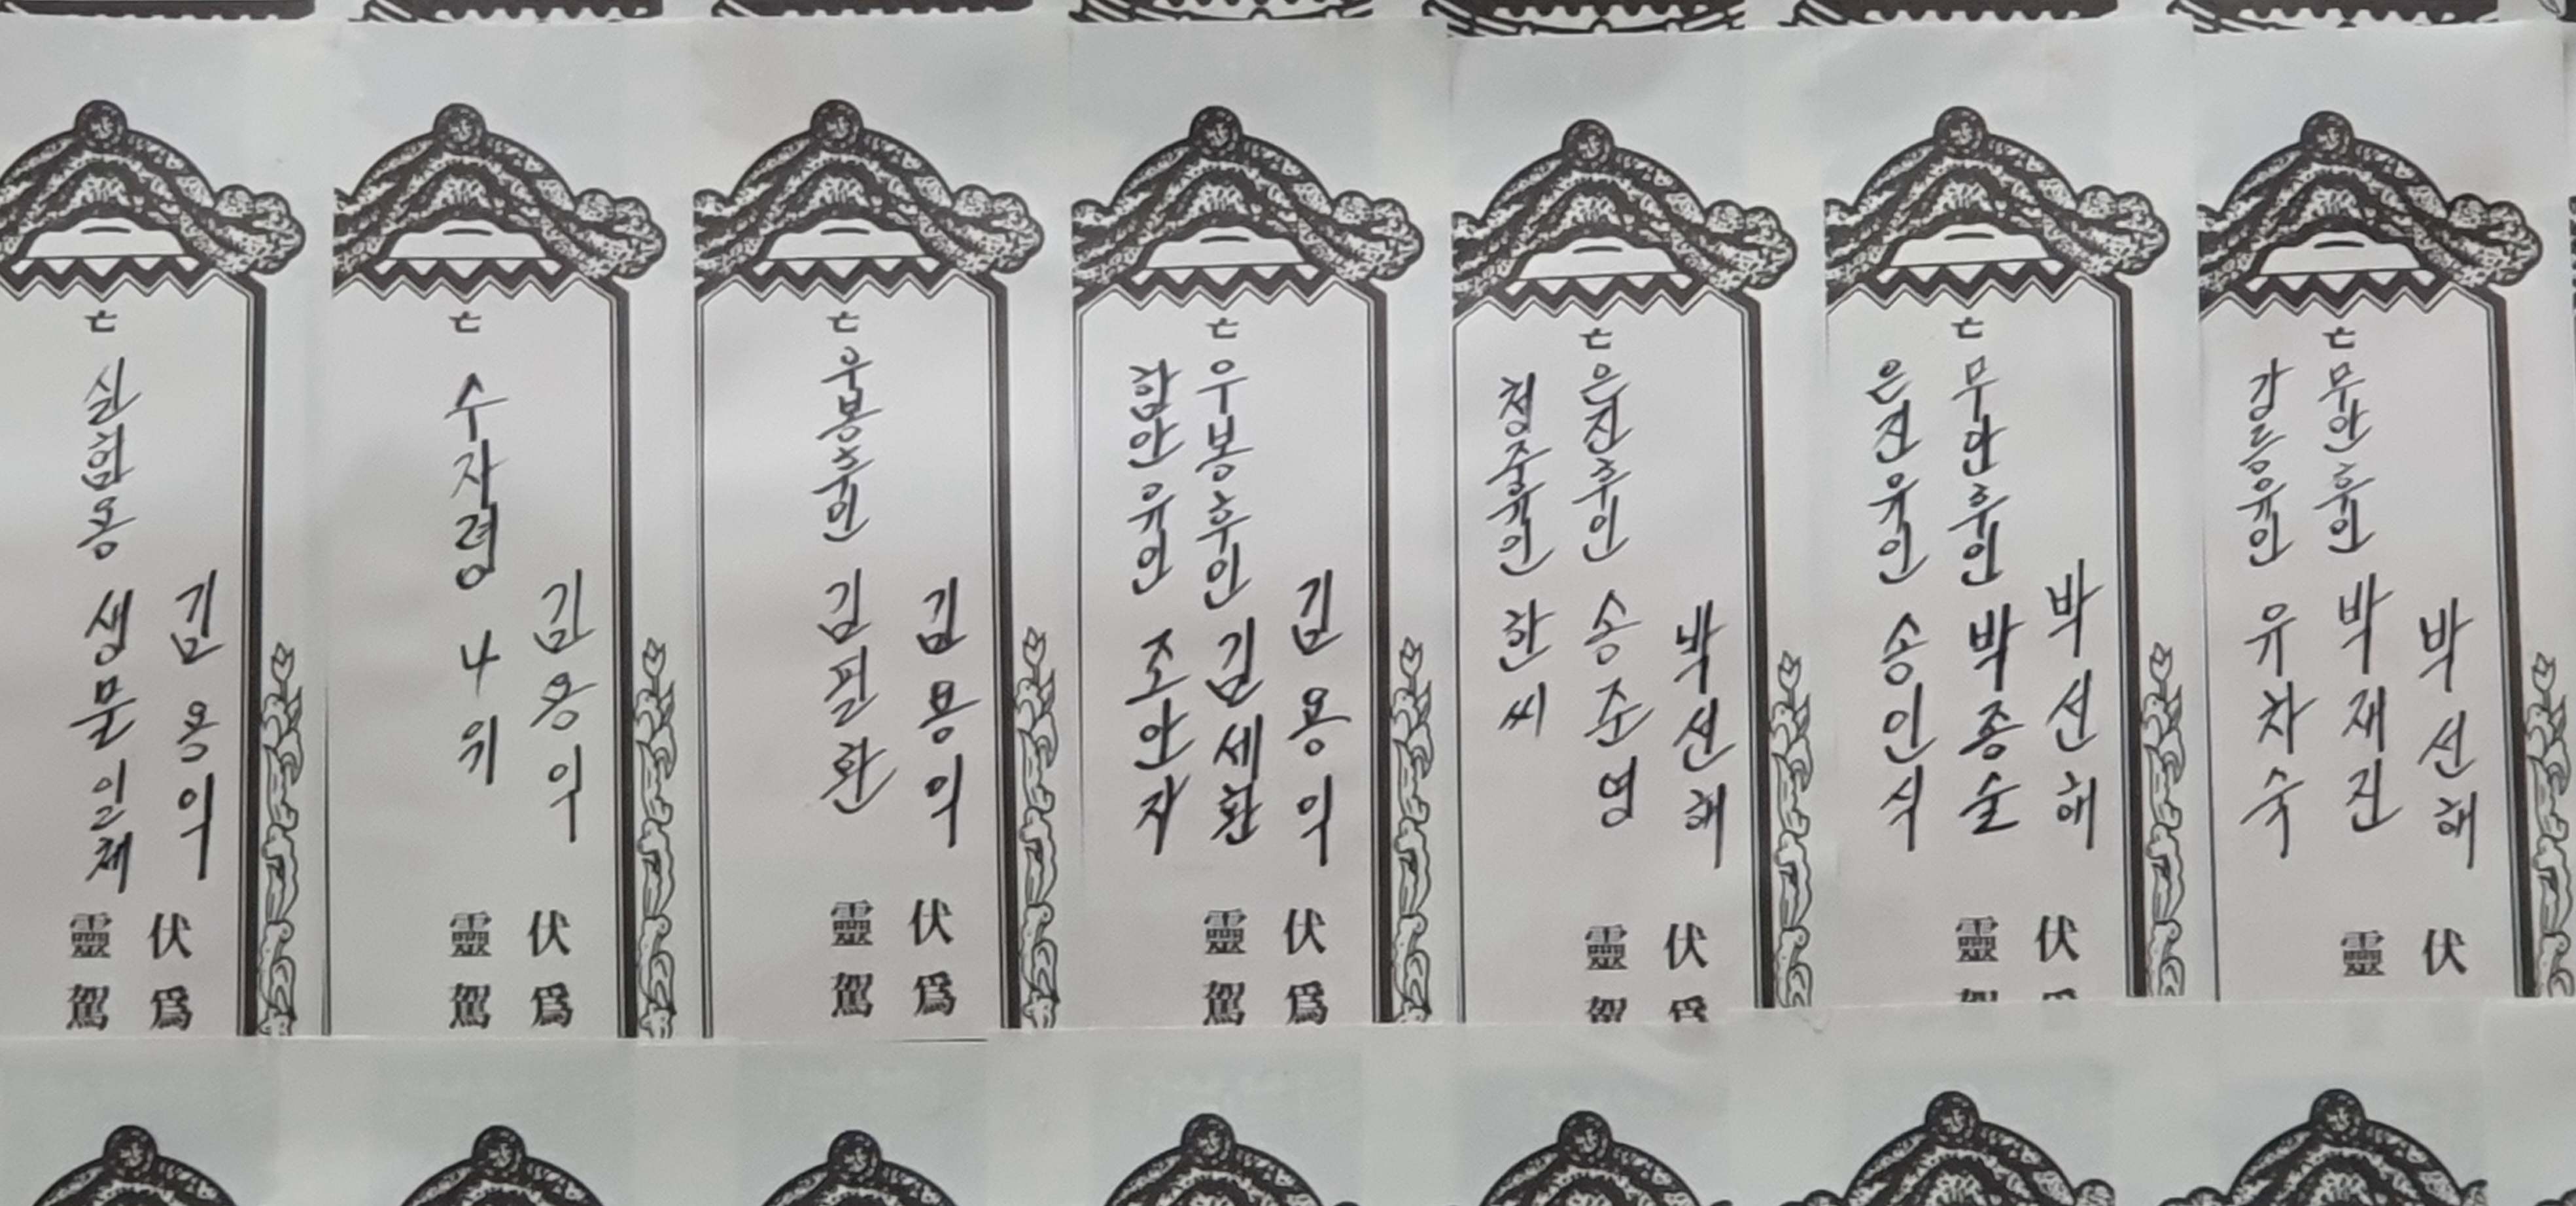 亡
실험용 생물일체
김용익
靈駕
伏爲
亡
수자령 나위
김용익
靈駕
伏爲
亡
우봉후인 김필환
김용익
靈駕
伏爲
亡
함안유인 조안자
우봉후인 김세환
김용익
靈駕
伏爲
亡
청주유인 한씨
은진후인 송준영
박선해
靈駕
伏爲
亡
은진유인 송인식
무안후인 박종술
박선해
靈駕
伏爲
亡
강릉유인 유차숙
무안후인 박재진
박선해
靈
伏